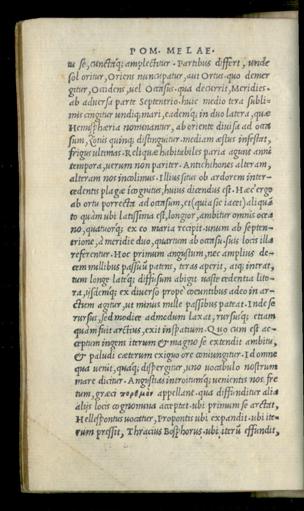 POM. MELAE.
tu se, cunctaq; amplectitur. Partibus differt, unde
sol oritur, Oriens nuncupatur, aut Ortus. quo demer
gitur, Occidens, uel Occasus. qua decurrit, Meridies.
ab aduersa parte Septentrio. huic medio tera subli-
mis cingitur undiq; mari, eademq; in duo latera, quæ
Hemisphæria nominantur, ab oriente diuisa ad occa
sum, Zonis quinq; distinguitur. mediam æstus infestat,
frigus ultimas. Reliquæ habitabiles paria agunt anni
tempora, uerum non pariter. Antichthones alteram,
alteram nos incolimus. Illius situs ob ardorem inter-
cedentis plagæ incognitus, huius dicendus est. Hæc ergo
ab ortu porrecta ad occasum, et (quia sic iacet) aliquā
to quàm ubi latissima est, longior, ambitur omnis ocea
no, quatuorq; ex eo maria recipit. unum ab septen-
trione, à meridie duo, quartum ab occasu. suis locis illa
referentur. Hoc primum angustum, nec amplius de-
cem millibus passuū patens, teras aperit, atq; intrat,
tum longe lateq; diffusum abigit uaste cedentia lito-
ra, ijsdemq; ex diuerso prope cœuntibus adeo in ar-
ctum agitur, ut minus mille passibus pateat. Inde se
rursus, sed modice admodum laxat, rursusq; etiam
quàm fuit arctius, exit in spatium. Quo cum est ac-
ceptum ingens iterum et magno se extendit ambitu,
et paludi cæterum exiguo ore coniungitur. Id omne
qua uenit, quaq; dispergitur, uno uocabulo nostrum
mare dicitur. Angustias introitumq; uenientis nos fre
tum, græci πορθμόν appellant. qua diffunditur alia
alijs locis cognomina acceptat. ubi primum se arctat,
Hellespontus uocatur, Propontis ubi expandit. ubi ite-
rum pressit, Thracius Bosphorus. ubi iterū effundit,